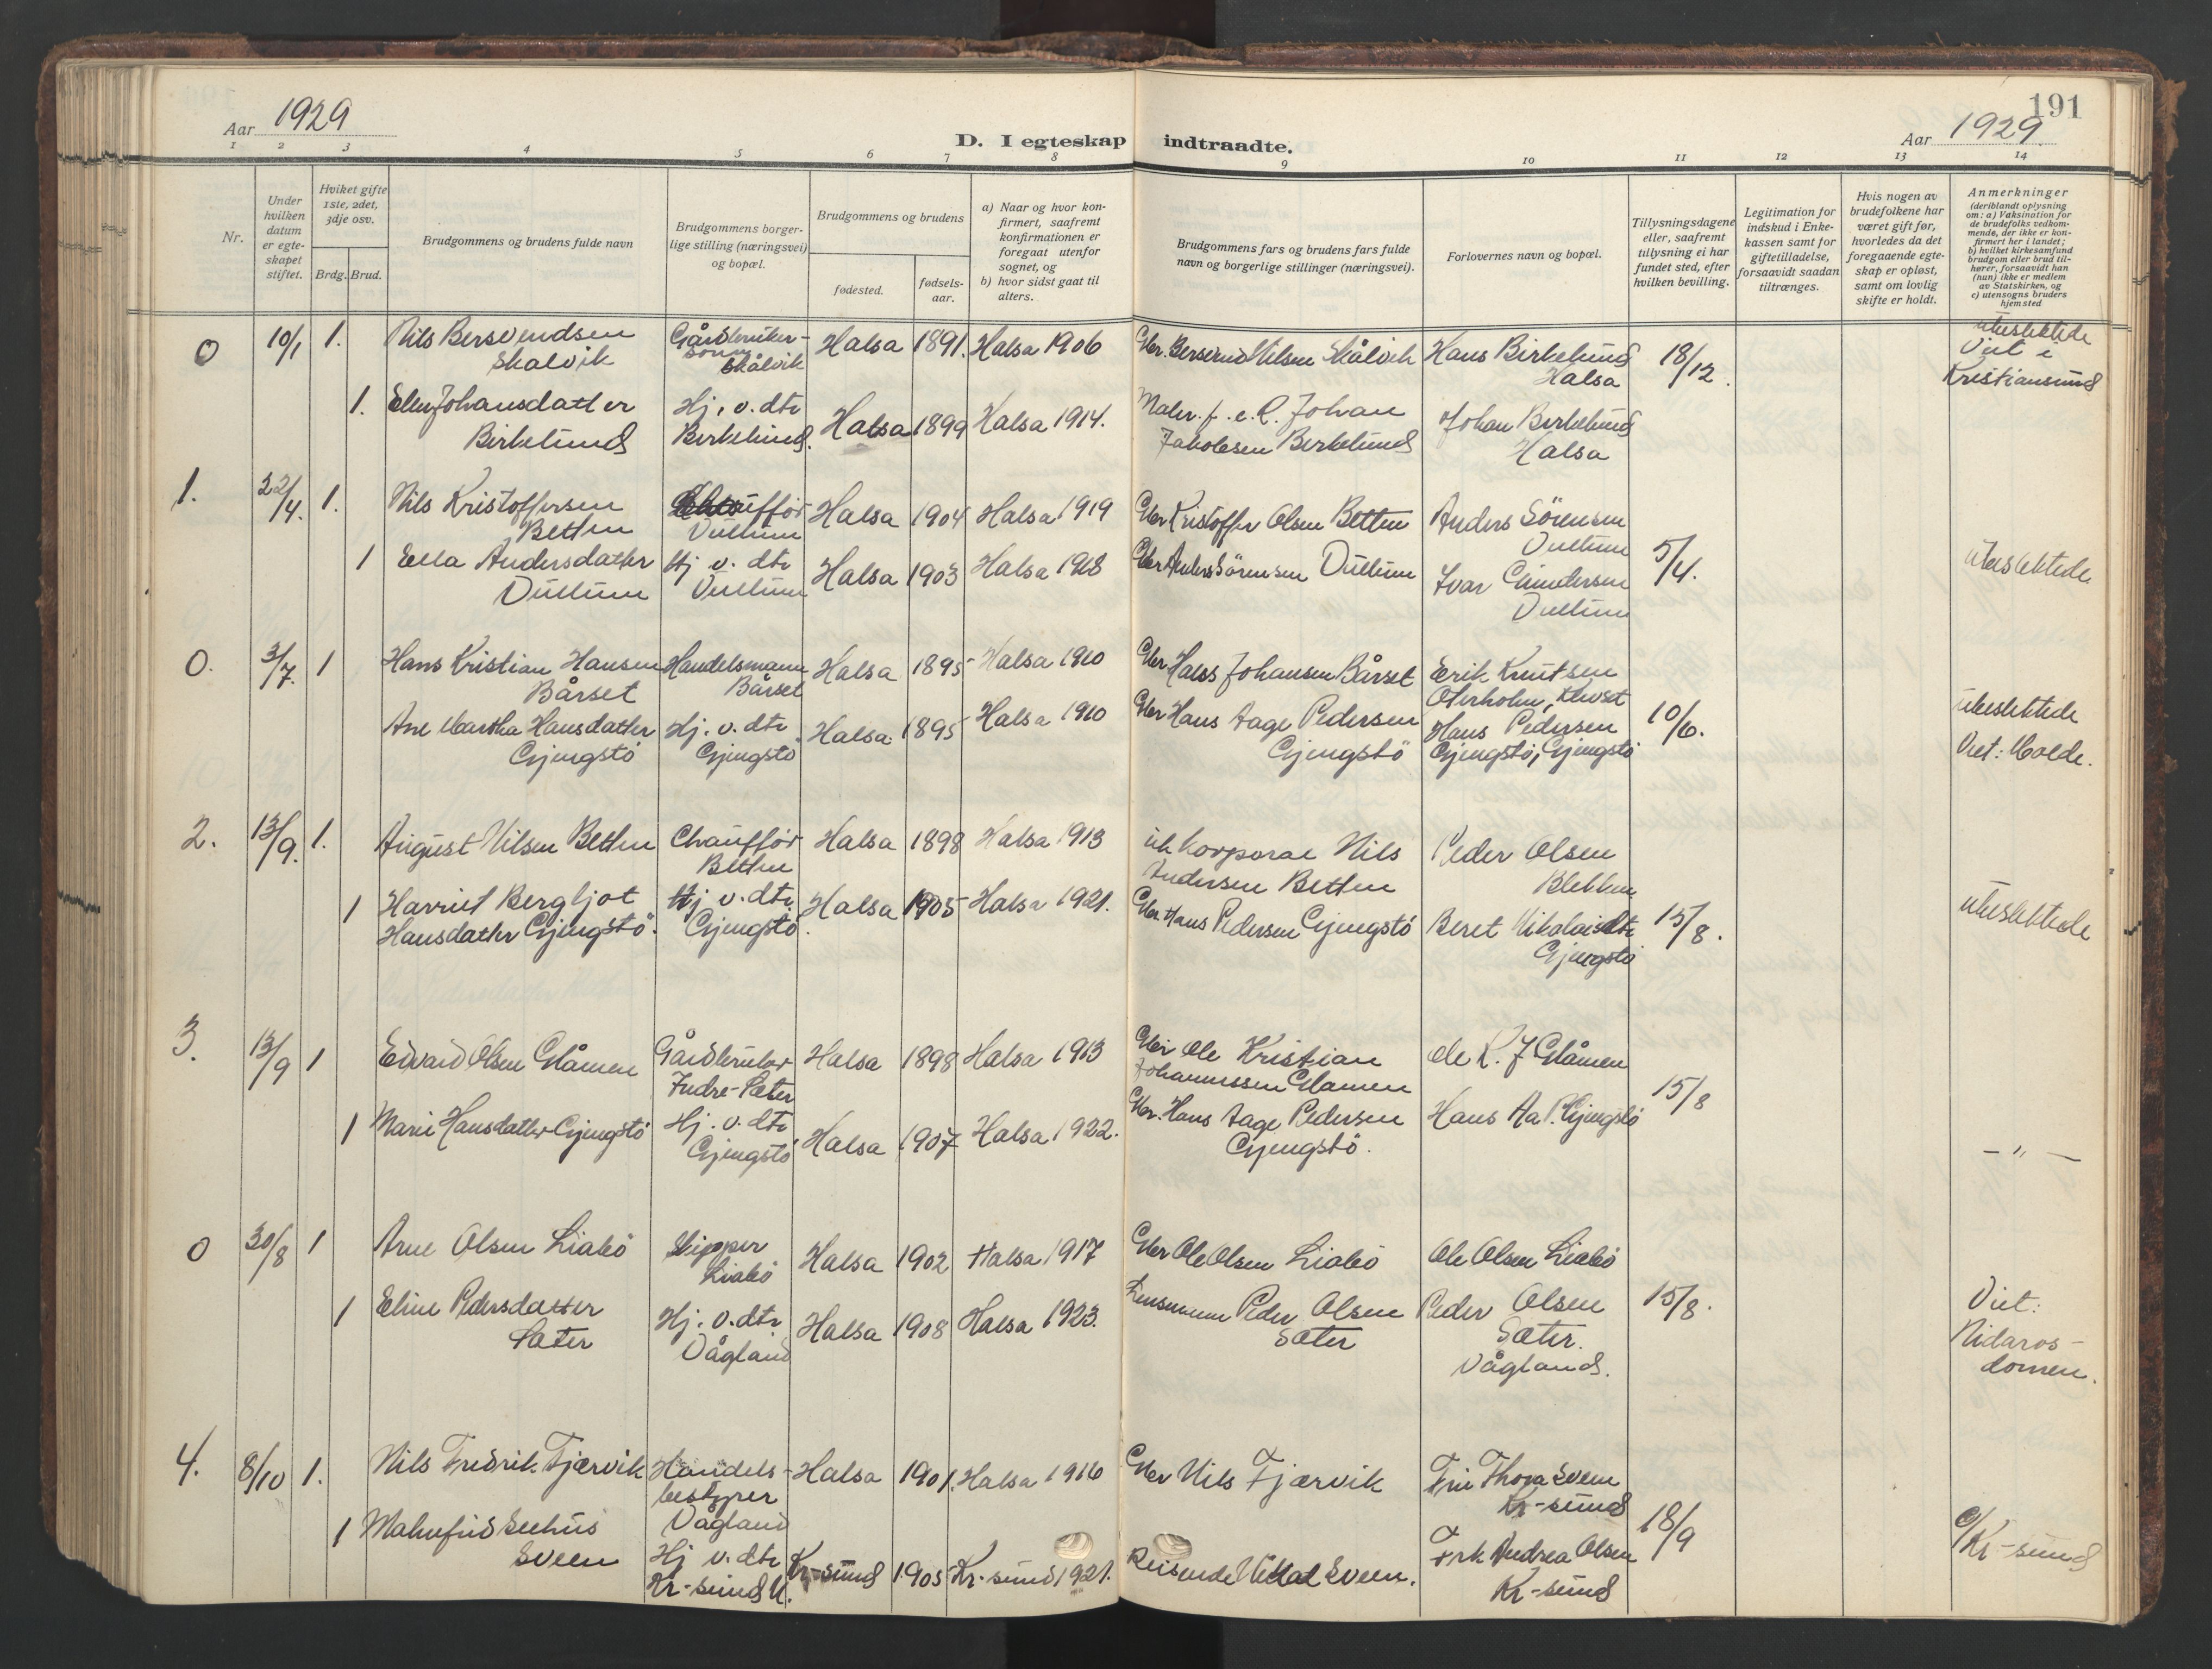 191
Aar 1929
D. I egteskap indtraadte.
Aar 1929.
1 2 3 4 5 6 7 8 9 10 11 12 13 14
Nr.
Under hvilken datum er egteskapet stiftet.
Hvilket gifte 1ste, 2det, 3dje osv.
Brdg. Brud.
Brudgommens og brudens fulde navn
Brudgommens borgerlige stilling (næringsvei) og bopæl.
Brudgommens og brudens
fødested.
fødselsaar.
a) Naar og hvor konfirmert, saafremt konfirmationen er foregaat utenfor sognet, og
b) hvor sidst gaat til alters.
Brudgommens fars og brudens fars fulde navn og borgerlige stillinger (næringsvei).
Forlovernes navn og bopæl.
Tillysningsdagene eller, saafremt tillysning ei har fundet sted, efter hvilken bevilling.
Legitimation for indskud i Enkekassen samt for giftetilladelse, forsaavidt saadan tiltrænges.
Hvis nogen av brudefolkene har været gift før, hvorledes da det foregaaende egteskap er opløst, samt om lovlig skifte er holdt.
Anmerkninger
(deriblandt oplysning om: a) Vaksination for de brudefolks vedkommende, der ikke er konfirmert her i landet; b) hvilket kirkesamfund brudgom eller brud tilhører, forsaavidt han (hun) ikke er medlem av Statskirken, og c) utensogns bruders hjemsted
0 10/1 1. Nils Bersvendsen Skalvik Gårdbruker-sönn Skålvik Halsa 1891. Halsa 1906 Gbr. Bersvend Nilsen Skålvik Hans Birkelund Halsa 18/12. ubeslektede Viet i Kristiansund
1. Ellen Johansdatter Birkelund Hj. v. dtr Birkelund. Halsa 1899 Halsa 1914. Maler. f. e. R. Johan Jakobsen Birkelund Johan Birkelund Halsa
1. 22/4. 1. Nils Kristoffersen Betten Chaufför Vullum Halsa 1904 Halsa 1919 Gbr Kristoffer Olsen Betten Anders Sörensen Vullum
1 Ella Andersdatter Vullum Hj v. dtr Vullum Halsa 1903 Halsa 1918 Gbr Anders Sörensen Vullum Ivar Gundersen Vullum 5/4. ubeslektede
0. 3/7. 1 Hans Kristian Hansen Bårset Handelsmann Bårset Halsa 1895 Halsa 1910 Gbr Hans Johansen Bårset Erik Knutsen Oterholm,
Ane Martha Hansdatter Gjengstö Hj. v. dtr Gjengstö Halsa 1895 Halsa 1910 Gbr Hans Aage Pedersen Gjengstö Hans Pedersen Gjengstö, Gjengstö 10/6. ubeslektede Viet: Molde.
2. 13/9. 1. August Nilsen Betten Chaufför Betten Halsa 1898 Halsa 1913 korporal Nils Andersen Betten Peder Olsen Blekken
1 Harriet Bergljot Hansdatter Gjengstö. Hj v. dtr Gjengstö. Halsa 1905 Halsa 1921. Gbr. Hans Pedersen Gjengstö Beret Nikolaisdtr Gjengstö 15/8. ubeslektede
3. 13/9 1 Edvard Olsen Glåmen Gårdbruker Indre-Sæter Halsa 1898 Halsa 1913 Gbr Ole Kristian Johannessen Glåmen Ole K. J Glåmen
1 Marie Hansdatter Gjengstö Hj. v. dtr Gjengstö Halsa 1907 Halsa 1922. Gbr. Hans Aage Pedersen Gjengstö. Hans Aa P. Gjengstö 15/8 — " —
0 30/8 1 Arne Olsen Liabö Skipper Liabö Halsa 1902 Halsa 1917 Gbr Ole Olsen Liabö Ole Olsen Liabö
1 Eline Pedersdatter Sæter Hj. v. dtr. Vågland Halsa 1908 Halsa 1923. Lensmann Peder Olsen Sæter Peder Olsen Sæter. Vågland. 15/8. Viet: Nidaros-domen.
4. 8/10 1. Nils Fredrik Fjærvik Handels-bestyrer Vågland Halsa 1901. Halsa 1916 Gbr Nils Fjærvik Fru Thora Sveen Kr-sund
1 Malmfrid Sveen Hj v. dtr Kr-sund N. Kr-sund 1905 Kr-sund 1921. Reisende Sveen. Frk Andrea Olsen Kr-sund 18/9 c/ Kr-sund